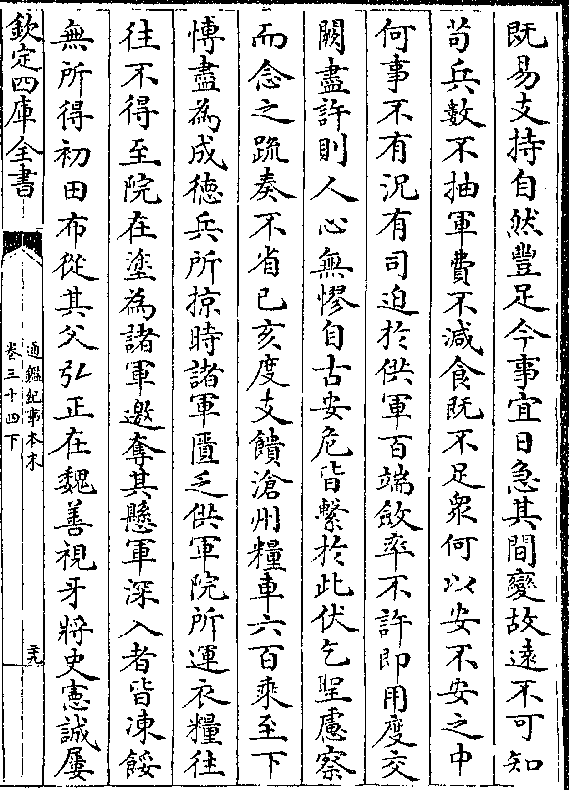 既易支持自然豐足今事宜日急其間變故遠不可知
苟兵數不抽軍費不減食既不足衆何以安不安之中
何事不有況有司迫於供軍百端斂率不許即用度交
闕盡許則人心無憀自古安危皆繫於此伏乞聖慮察
而念之疏奏不省己亥度支饋滄州糧車六百乘至下
博盡為成德兵所掠時諸軍匱乏供軍院所運衣糧往
往不得至院在塗為諸軍邀奪其懸軍深入者皆凍餒
無所得初田布從其父弘正在魏善視牙將史憲誠屢
欽定四庫全書
通鑑紀事本末
卷三十四下
三九